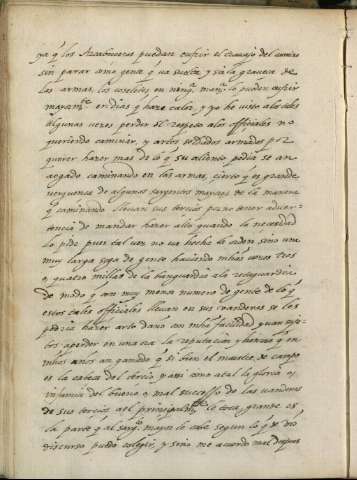 ya q̃ los Arcabuceros puedan sufrir el trauajo del camino
sin parar como gente q̃ va suelta, y sin la graueça de
las armas, los coseletes en ningª manª lo pueden sufrir
mayormᵗᵉ en dias q̃ haze calor, y yo he visto a los tales
algunas vezes perder el respeto a los officiales no
queriendo caminar, y a otros soldados armados por
querer hazer mas de lo q̃ su aliento podia se an
aogado caminando en las armas, cierto q̃ es grande
verguença de algunos sargentos mayores de la manera
q̃ caminando lleuan sus tercios por no tener aduer-
tencia de mandar hazer alto quando la necesidad
lo pide pues tal vez no va hecho el orden sino una
muy larga sopa de gente haciendo mĩas vnas tres
o quatro millas de la banguardia a la retaguardia
de modo q̃ con muy menor numero de gente de lo q̃
estos tales officiales lleuan en sus vanderas se les
podria hazer arto daño con mĩa facilidad, y van suje-
tos a perder en una ora la reputacion y honrra q̃ en
mĩos años an ganado q̃ si bien el maestre de campo
es la cabeza del tercio, y assi como a tal la gloria o
infamia del bueno o mal successo de las vanderas
de su tercio a el principalmᵗᵉ le toca, grande es
la parte q̃ al sargᵗᵒ mayor le cabe segun lo q̃ de mi
discurso puede colegir, y sino me acuerdo mal despues